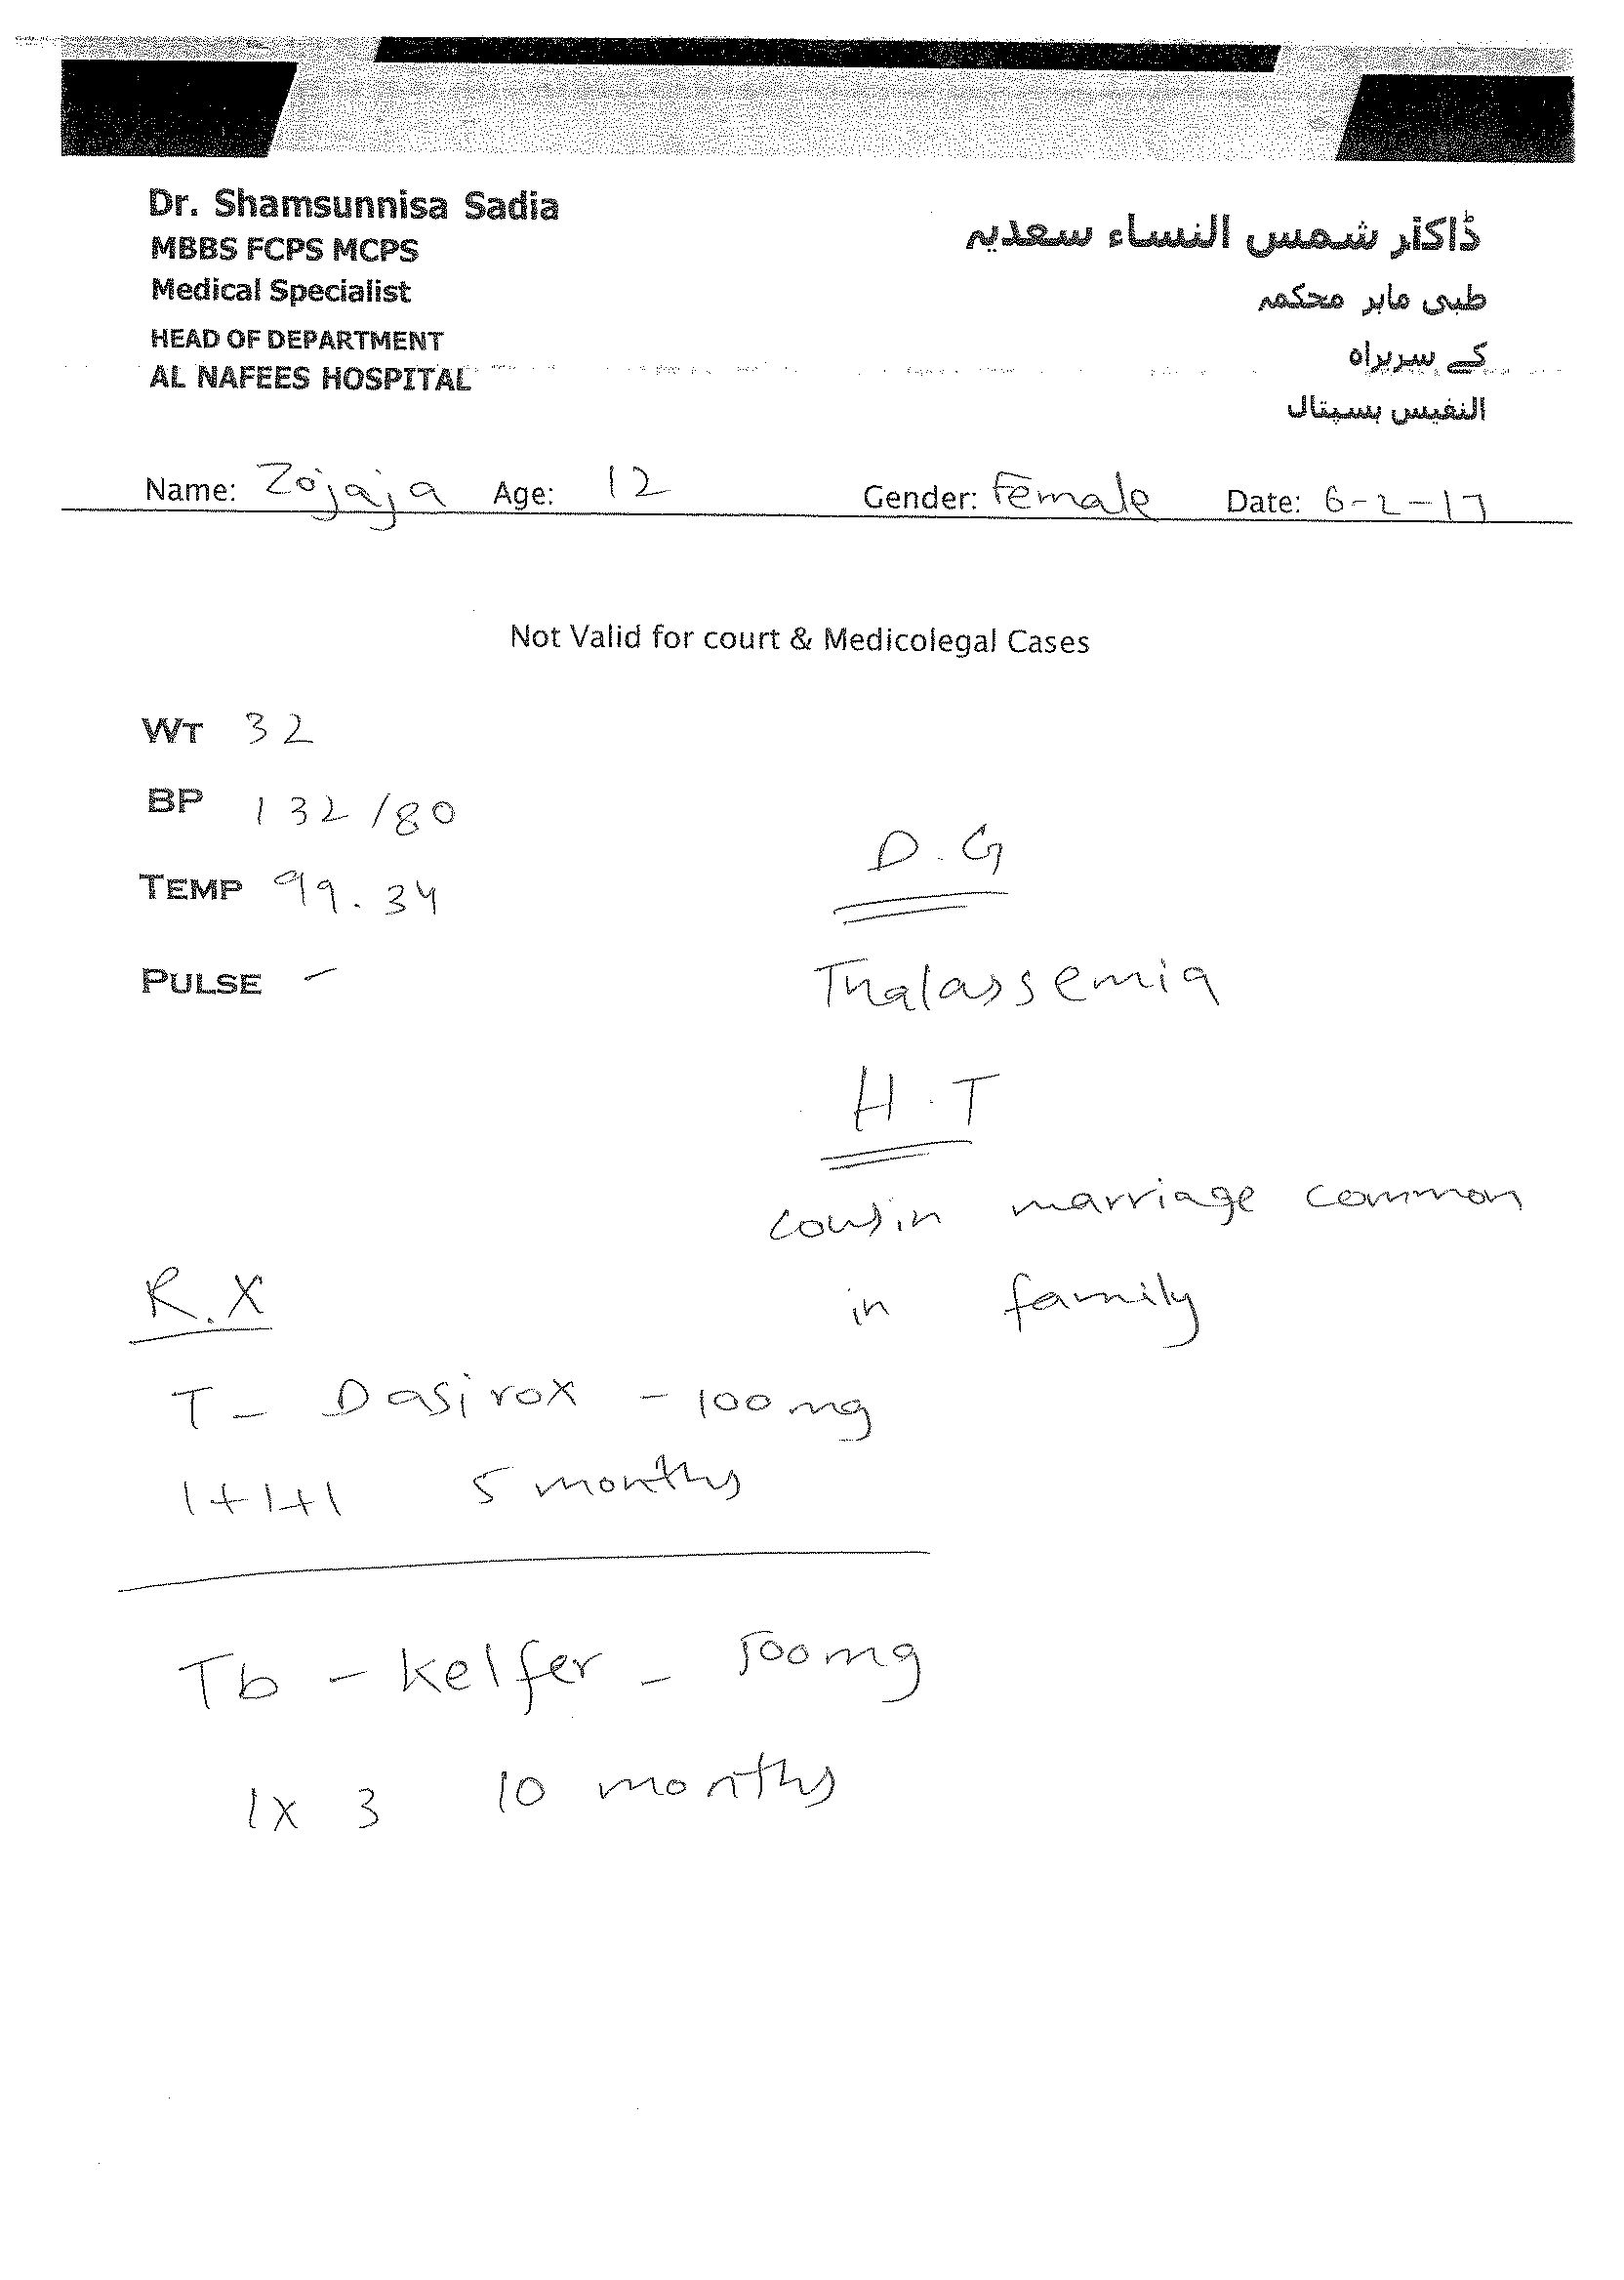 Dr. Shamsunnisa Sadia
MBBS FCPS MCPS
Medical Specialist
HEAD OF DEPARTMENT
AL NAFEES HOSPITAL
ڈاکٹر شمس النساء سعدیہ
طبی ماہر محکمہ
کے سربراہ
النفیس ہسپتال
Name: Zojaja Age: 12 Gender: Female Date: 6-2-17
Not Valid for court & Medicolegal Cases
WT 32
BP 132/80
TEMP 99.34
PULSE -
D.G
Thalassemia
H.T
cousin marriage common
in family
R.X
T- Dasirox - 100mg
1+1+1 5 months
Tb - kelfer - 500mg
1x3 10 months